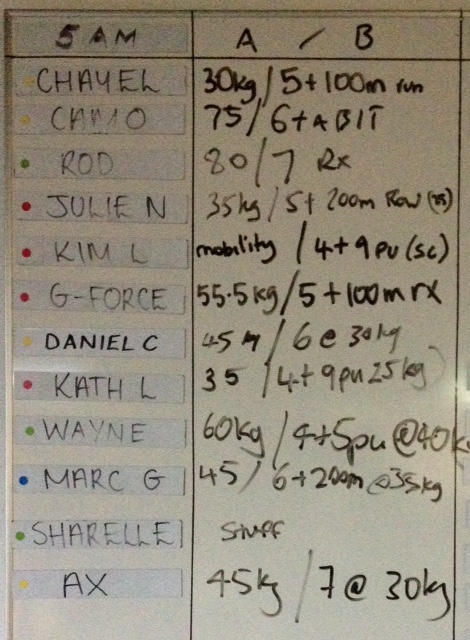 5 AM A / B
CHAYEL 30kg / 5+100m run
CAMO 75 / 6+ A BIT
ROD 80 / 7 Rx
JULIE N 35kg / 5+ 200m Row (rs)
KIM L mobility / 4+9pu (sc)
G-FORCE 55.5kg / 5+100m rx
DANIEL C 45 / 6 @ 30kg
KATH L 35 / 4+9pu 25kg
WAYNE 60kg / 4+5pu @40k
MARC G 45 / 6+200m @35kg
SHARELLE stuff
AX 45kg / 7 @ 30kg